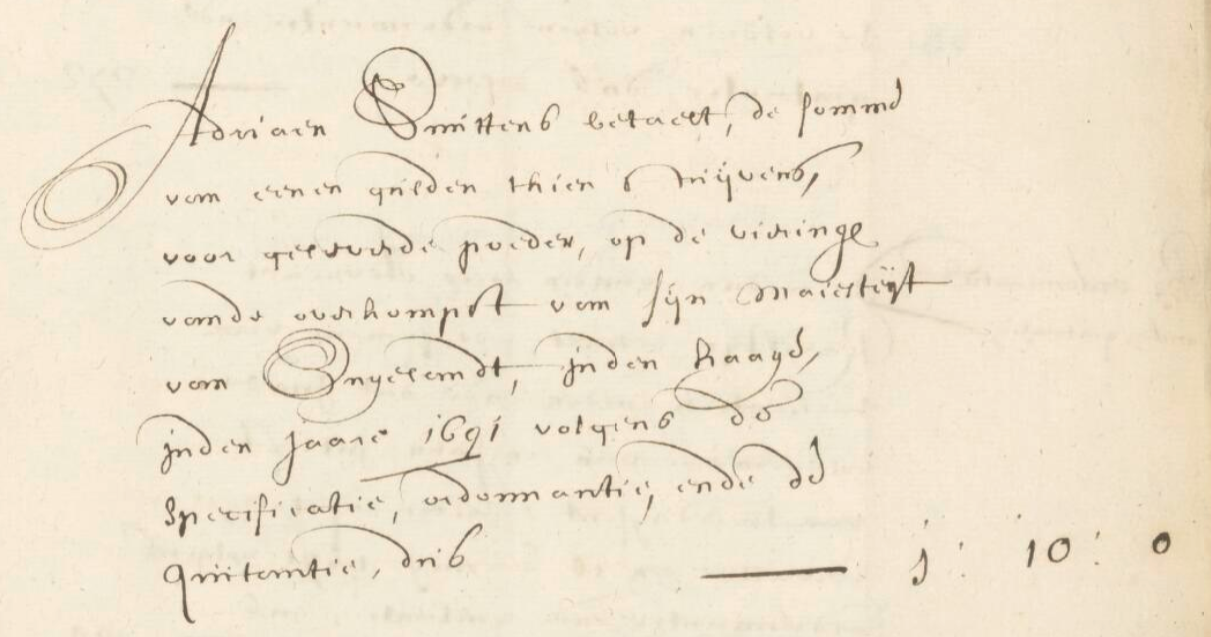 Adriaen Smittens betaelt, de somme
van eenen gulden thien stuijvers,
voor geleverde poeder, op de vieringe
vande overkompst van sijn Maiesteijt
van Engelandt, inden Haage,
inden jaare 1691 volgens de
specificatie, ordonnantie, ende de
quitantie, dus 1: 10: 0